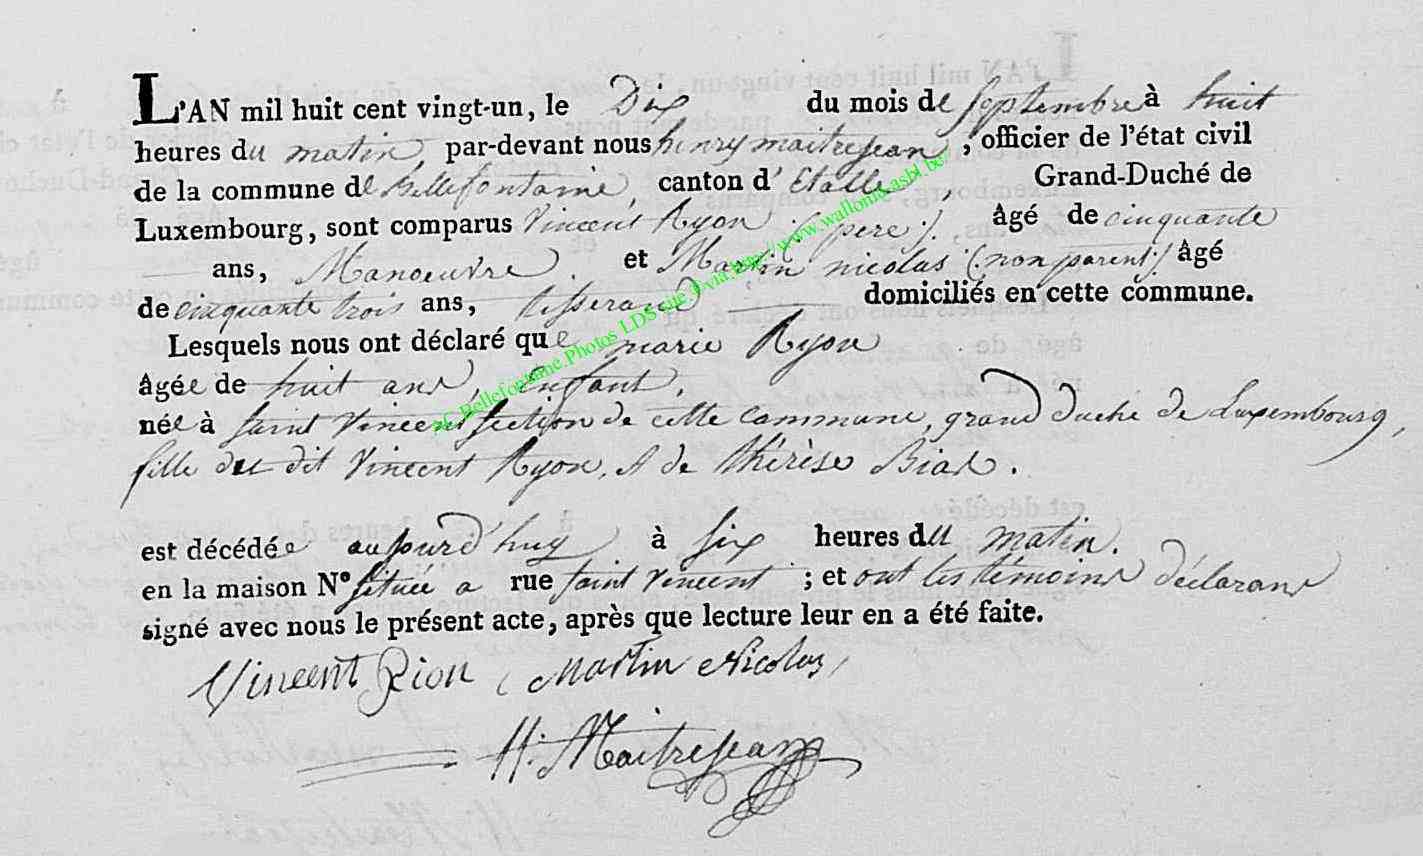 L'AN mil huit cent vingt-un, le Dix du mois de Septembre à huit
heures du matin, par-devant nous henry maitrejean, officier de l'état civil
de la commune de Bellefontaine, canton d'Etalle Grand-Duché de
Luxembourg, sont comparus Vincent Ryon (pere), âgé de cinquante
ans, Manoeuvre. et Martin nicolas (non parent) âgé
de cinquante trois ans, tisserand domiciliés en cette commune.
Lesquels nous ont déclaré que marie Ryon
âgée de huit ans, Enfant,
née à Saint Vincent Section de cette commune, grand duché de Luxembourg,
fille du dit Vincent Ryon, et de thérèse Biah.
est décédée aujourd'huy à six heures du matin.
en la maison N° située a rue saint Vincent ; et ont les témoins déclarans
signé avec nous le présent acte, après que lecture leur en a été faite.
Vincent Rion Martin Nicolas,
H. Maitrejean
Bellefontaine.Photos LDS site Evia http://www.wallonia.asbl.be/